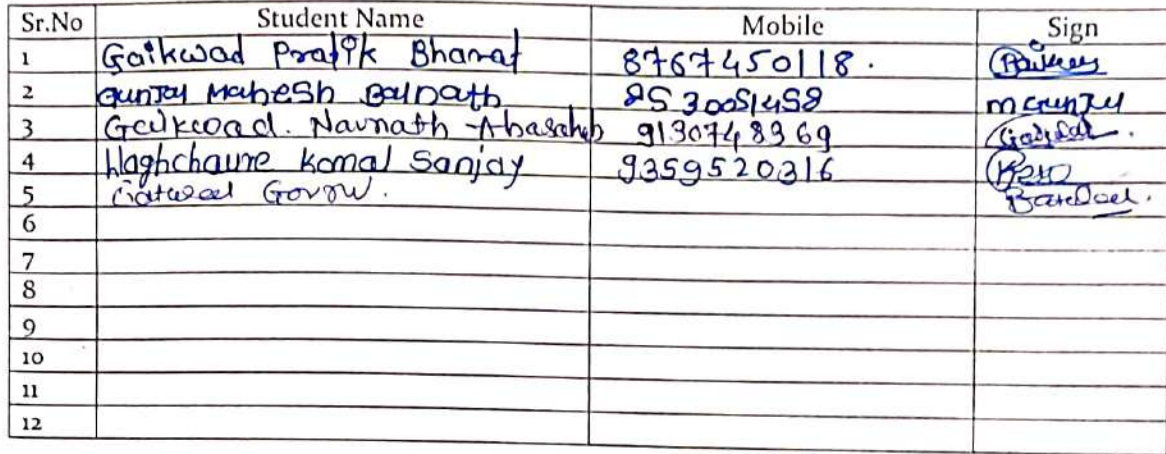 Sr.No Student Name Mobile Sign
1 Gaikwad Pratik Bharat 8767450118.
2 Gunjal Mahesh Balnath mGunjal
3 Gaikwad. Navnath Abasaheb 9130748969
4 Waghchaure Komal Sanjay 9359520316
5
6
7
8
9
10
11
12